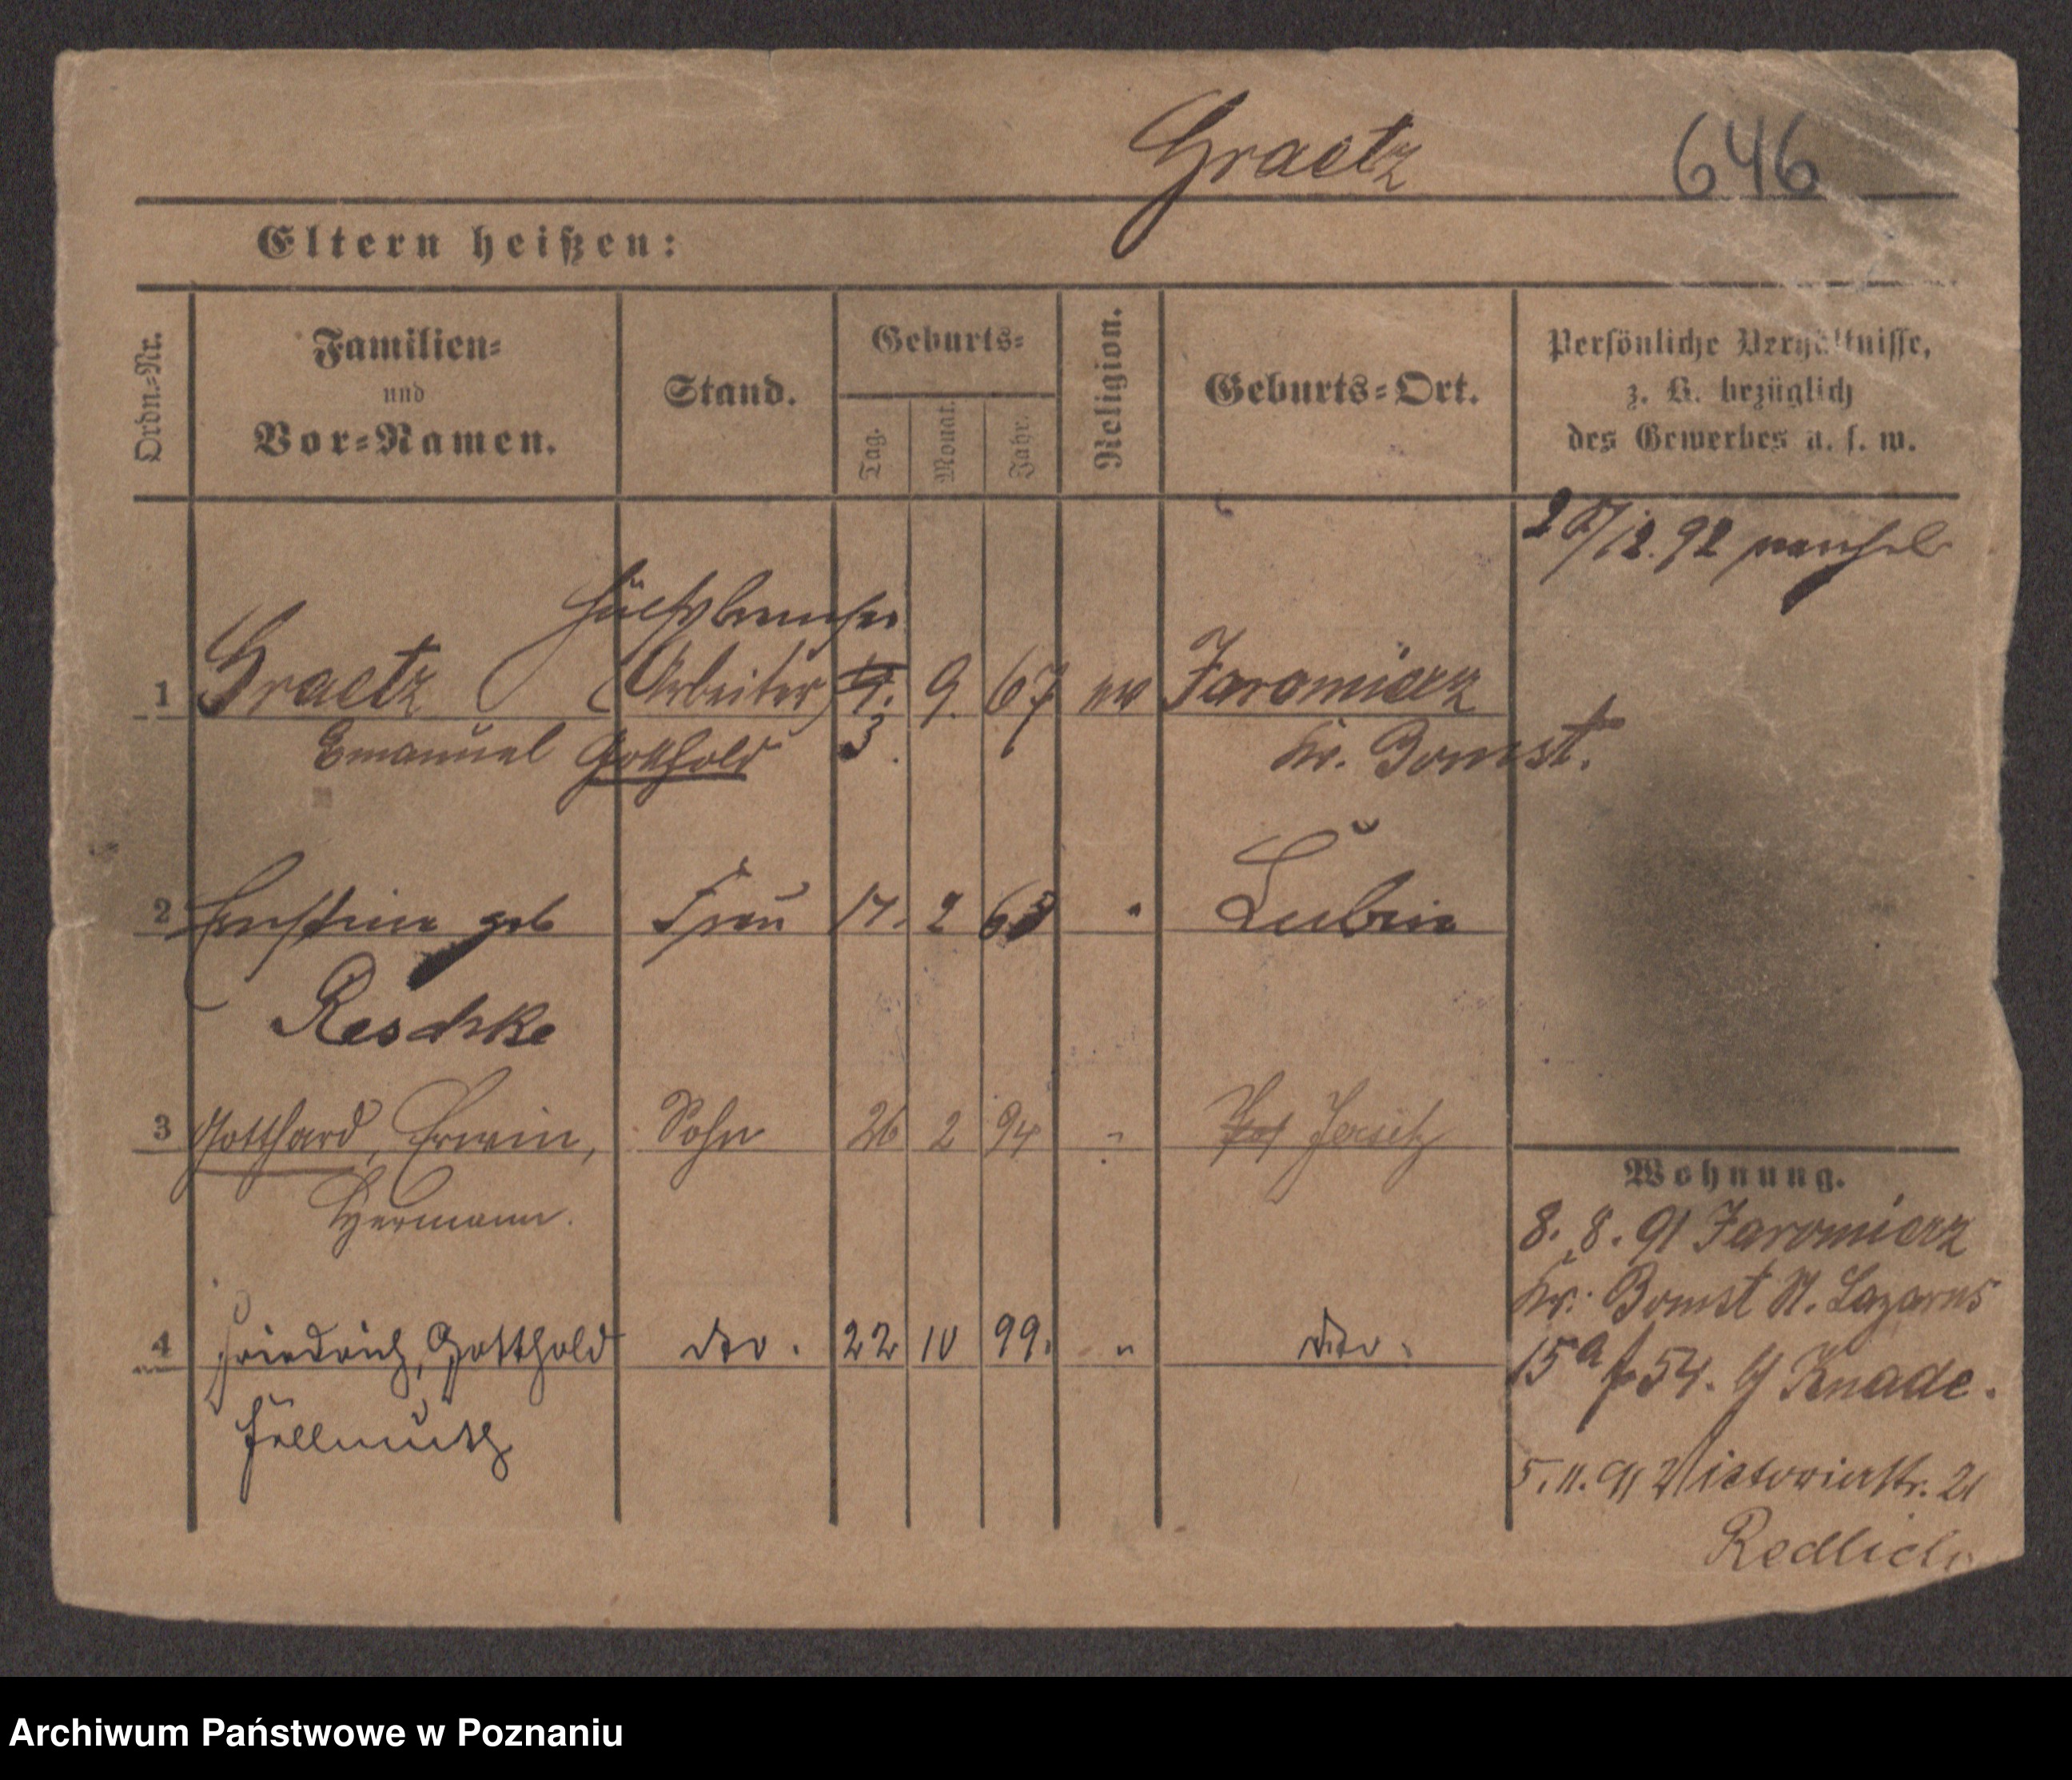 Graetz 646
Eltern heißen:
Ordn.-Nr.
Familien-
und
Vor-Namen.
Stand.
Geburts-
Tag.
Monat.
Jahr.
Religion.
Geburts-Ort.
Persönliche Verhältnisse,
z. B. bezüglich
des Gewerbes u. s. w.
/12.92
1 Graetz (Arbeiter) 9. 67 Jaromierz
Emanuel Gotthold 3. Kr. Bomst.
2 Ernstine geb Frau 17. 2 Lubin
Reschke
3 Gotthard, Erwin, Sohn 26 2 94 " Jersitz
Hermann.
4 Friedrich, Gotthold dto. 22 10 99. " dto.
Hellmuth
Wohnung.
8. 8. 91 Jaromierz
Kr. Bomst St. Lazarus
15a 54. Knade.
5.11.91 Victoriastr. 21
Redlich
Archiwum Państwowe w Poznaniu